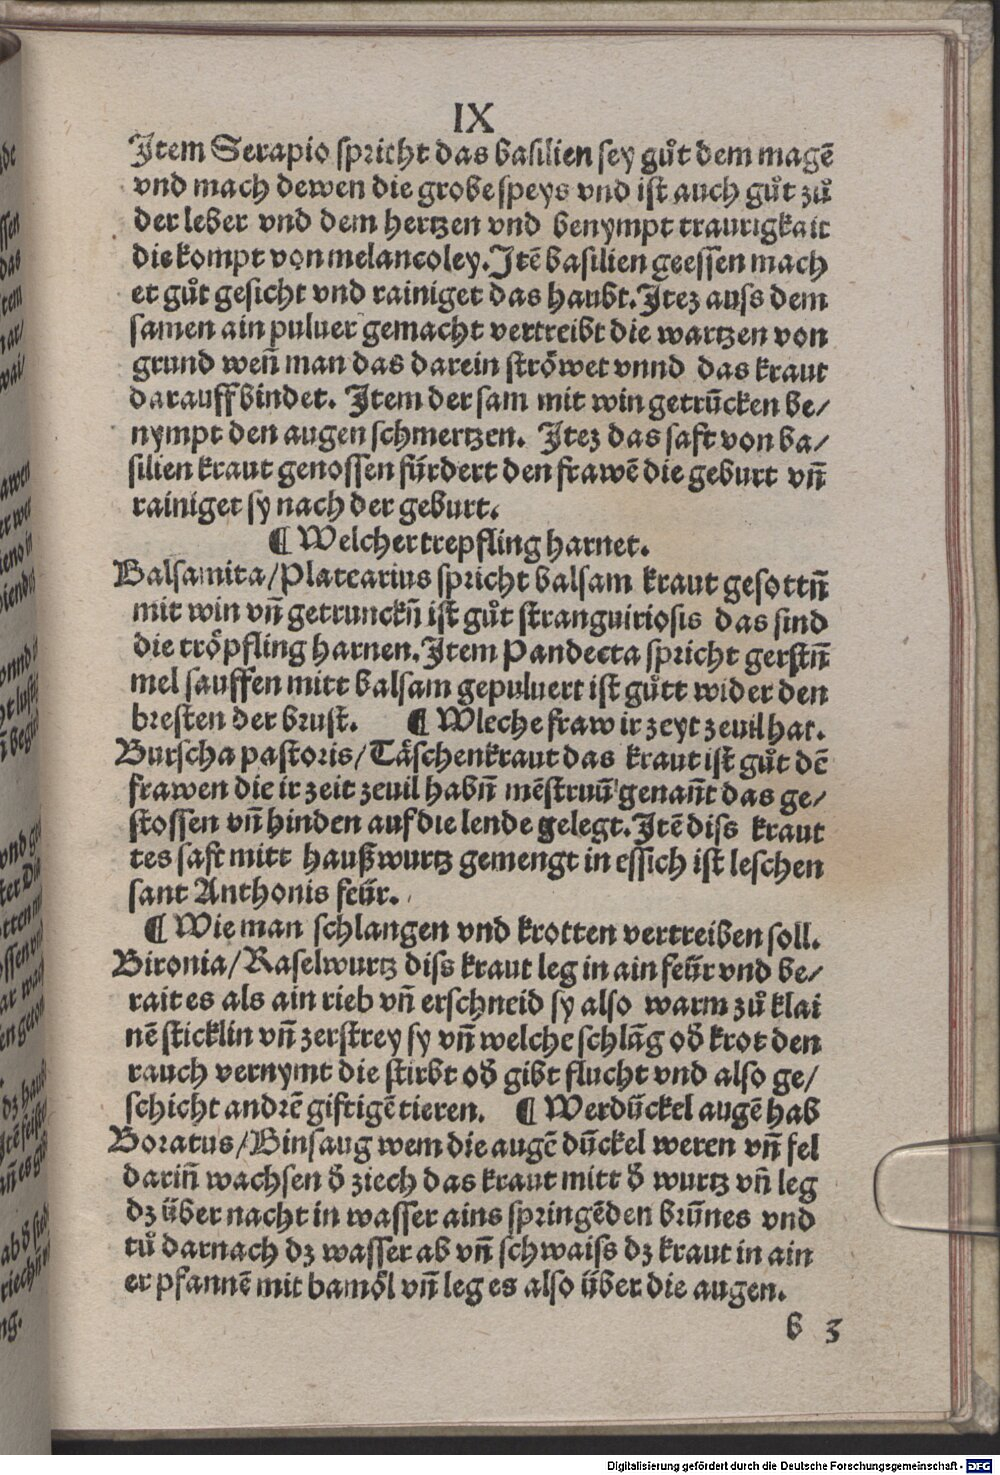 IX
Item Serapio spricht das basilien sey gůt dem magē
vnd mach dewen die grobe speys vnd ist auch gůt zů
der leber vnd dem hertzen vnd benympt traurigkait
die kompt von melancoley. Itē basilien geessen mach
et gůt gesicht vnd rainiget das haubt. Itez auss dem
samen ain puluer gemacht vertreibt die wartzen von
grund weñ man das darein ströwet vnnd das kraut
darauff bindet. Item der sam mit win getrūcken be/
nympt den augen schmertzen. Itez das saft von ba/
silien kraut genossen fürdert den frawē die geburt vñ
rainiget sy nach der geburt.
¶ Welcher trepfling harnet.
Balsamita/Platearius spricht balsam kraut gesottñ
mit win vñ getrunckñ ist gůt stranguiriosis das sind
die tröpfling harnen. Item Pandecta spricht gerstñ
mel sauffen mitt balsam gepuluert ist gůtt wider den
bresten der brust. ¶ Wleche fraw ir zeyt zeuil hat.
Burscha pastoris/Täschenkraut das kraut ist gůt dē
frawen die ir zeit zeuil habñ mēstruū genañt das ge/
stossen vñ hinden auf die lende gelegt. Itē diss kraut
tes saft mitt haußwurtz gemengt in essich ist leschen
sant Anthonis feür.
¶ Wie man schlangen vnd krotten vertreiben soll.
Bironia/Raselwurtz diss kraut leg in ain feür vnd be/
rait es als ain rieb vñ erschneid sy also warm zů klai
nē sticklin vñ zerstrey sy vñ welche schlāg oď krot den
rauch vernymt die stirbt oď gibt flucht vnd also ge/
schicht andrē giftigē tieren. ¶ Wer dūckel augē hab
Boratus/Binsaug wem die augē dūckel weren vñ fel
dariñ wachsen ď ziech das kraut mitt ď wurtz vñ leg
dz über nacht in wasser ains springēden brūnes vnd
tů darnach dz wasser ab vñ schwaiss dz kraut in ain
er pfannē mit bamöl vñ leg es also über die augen.
b 3
Digitalisierung gefördert durch die Deutsche Forschungsgemeinschaft - DFG